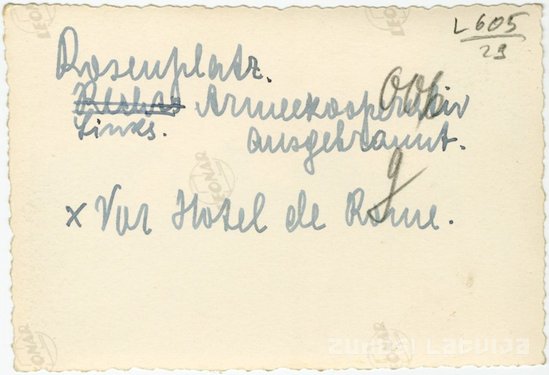 L605
29
Rosenplatz.
Rechts Armeekooperativ
Links. ausgebrannt.
g
x Vor Hotel de Rome.
LEONAR
LEONAR
LEONAR
LEONAR
Zudusī Latvija